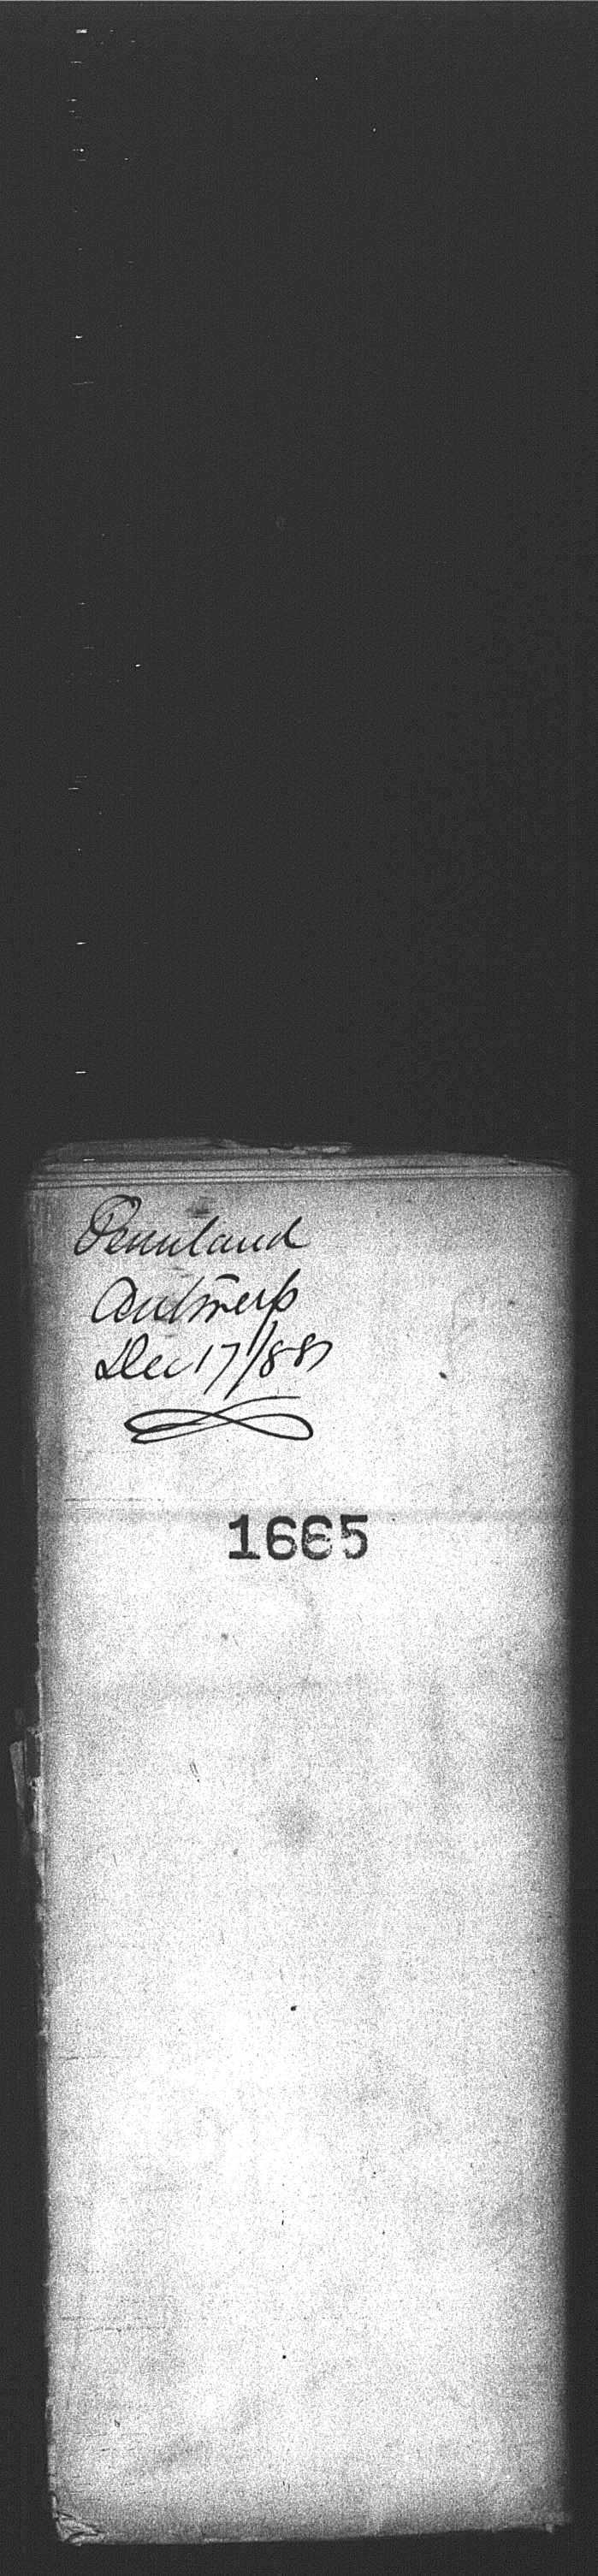 Pennland
Antwerp
Dec 17/88
1665